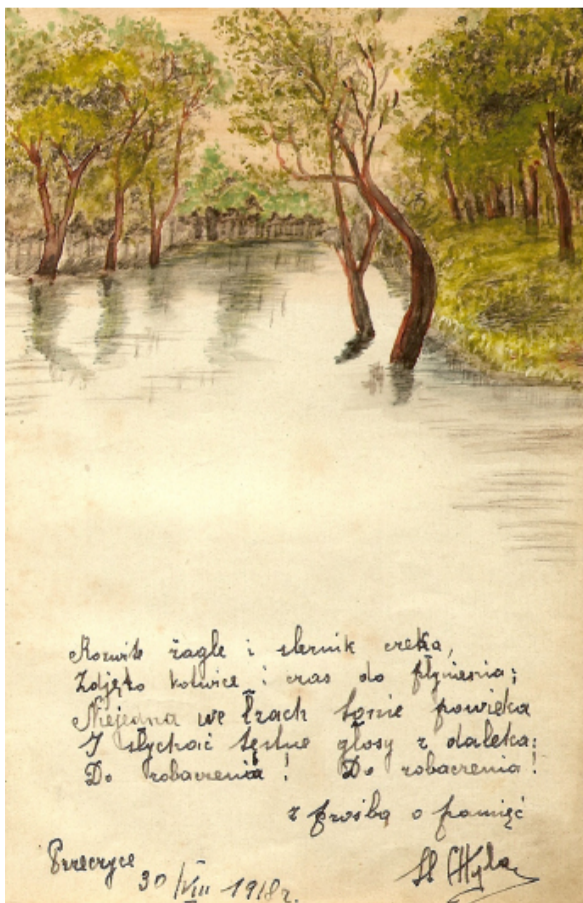 Rozwite żagle i sternik czeka,
Zdjęto kotwice i czas do płynienia;
Niejedna we łzach tonie powieka
I słychać tęskne głosy z daleka:
Do zobaczenia! Do zobaczenia!
z prośbą o pamięć
Przeczyce
30/VIII 1918r.